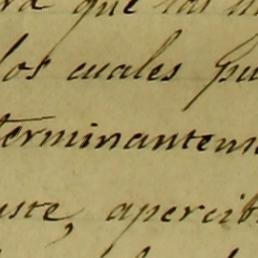 que las
los cuales pu
terminantem
uste, apercib